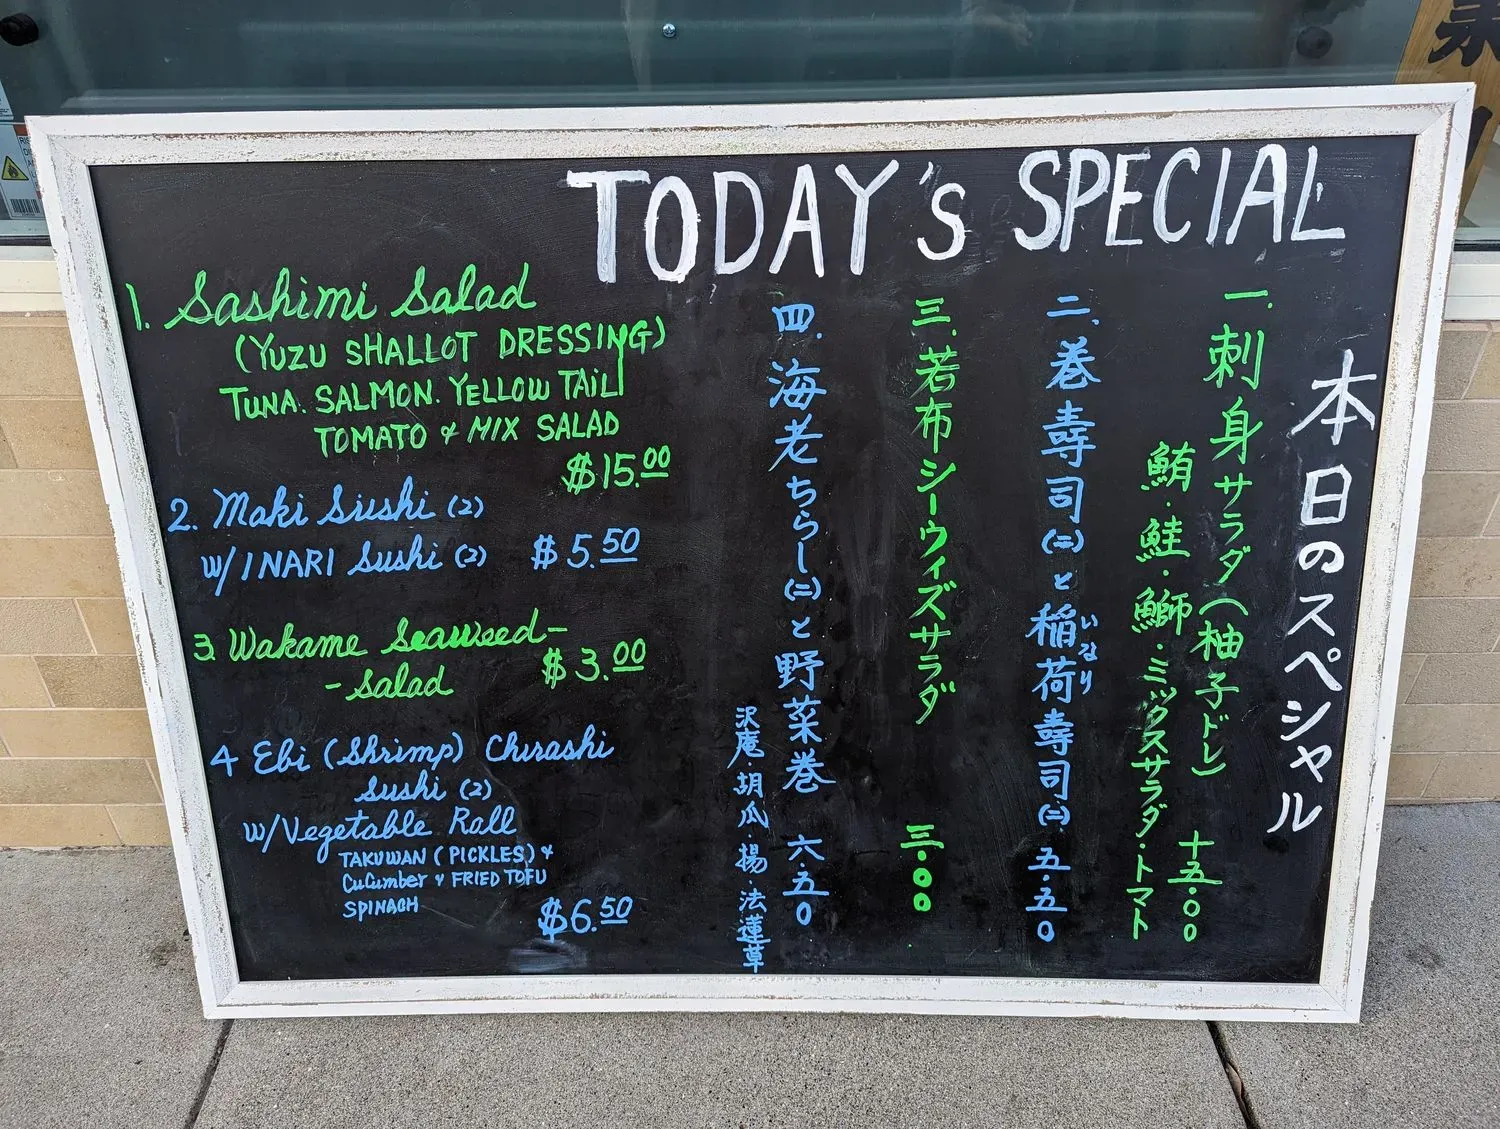 TODAY's SPECIAL
1. Sashimi Salad
(YUZU SHALLOT DRESSING)
TUNA. SALMON. YELLOW TAIL
TOMATO & MIX SALAD
$15.00
2. Maki Sushi (2)
w/INARI Sushi (2) $5.50
3. Wakame Seaweed-
-Salad $3.00
4 Ebi (Shrimp) Chirashi
Sushi (2)
w/Vegetable Roll
TAKUWAN (PICKLES) &
CuCumber & FRIED TOFU
SPINACH
$6.50
本日のスペシャル
一.刺身サラダ(柚子ドレ) 十五.00
鮪・鮭・鰤・ミックスサラダ・トマト
二.巻寿司(二)と稲荷寿司(二) 五.五0
いなり
三.若布シーウィズサラダ 三.00
四.海老ちらし(二)と野菜巻 六.五0
沢庵・胡瓜・揚・法蓮草